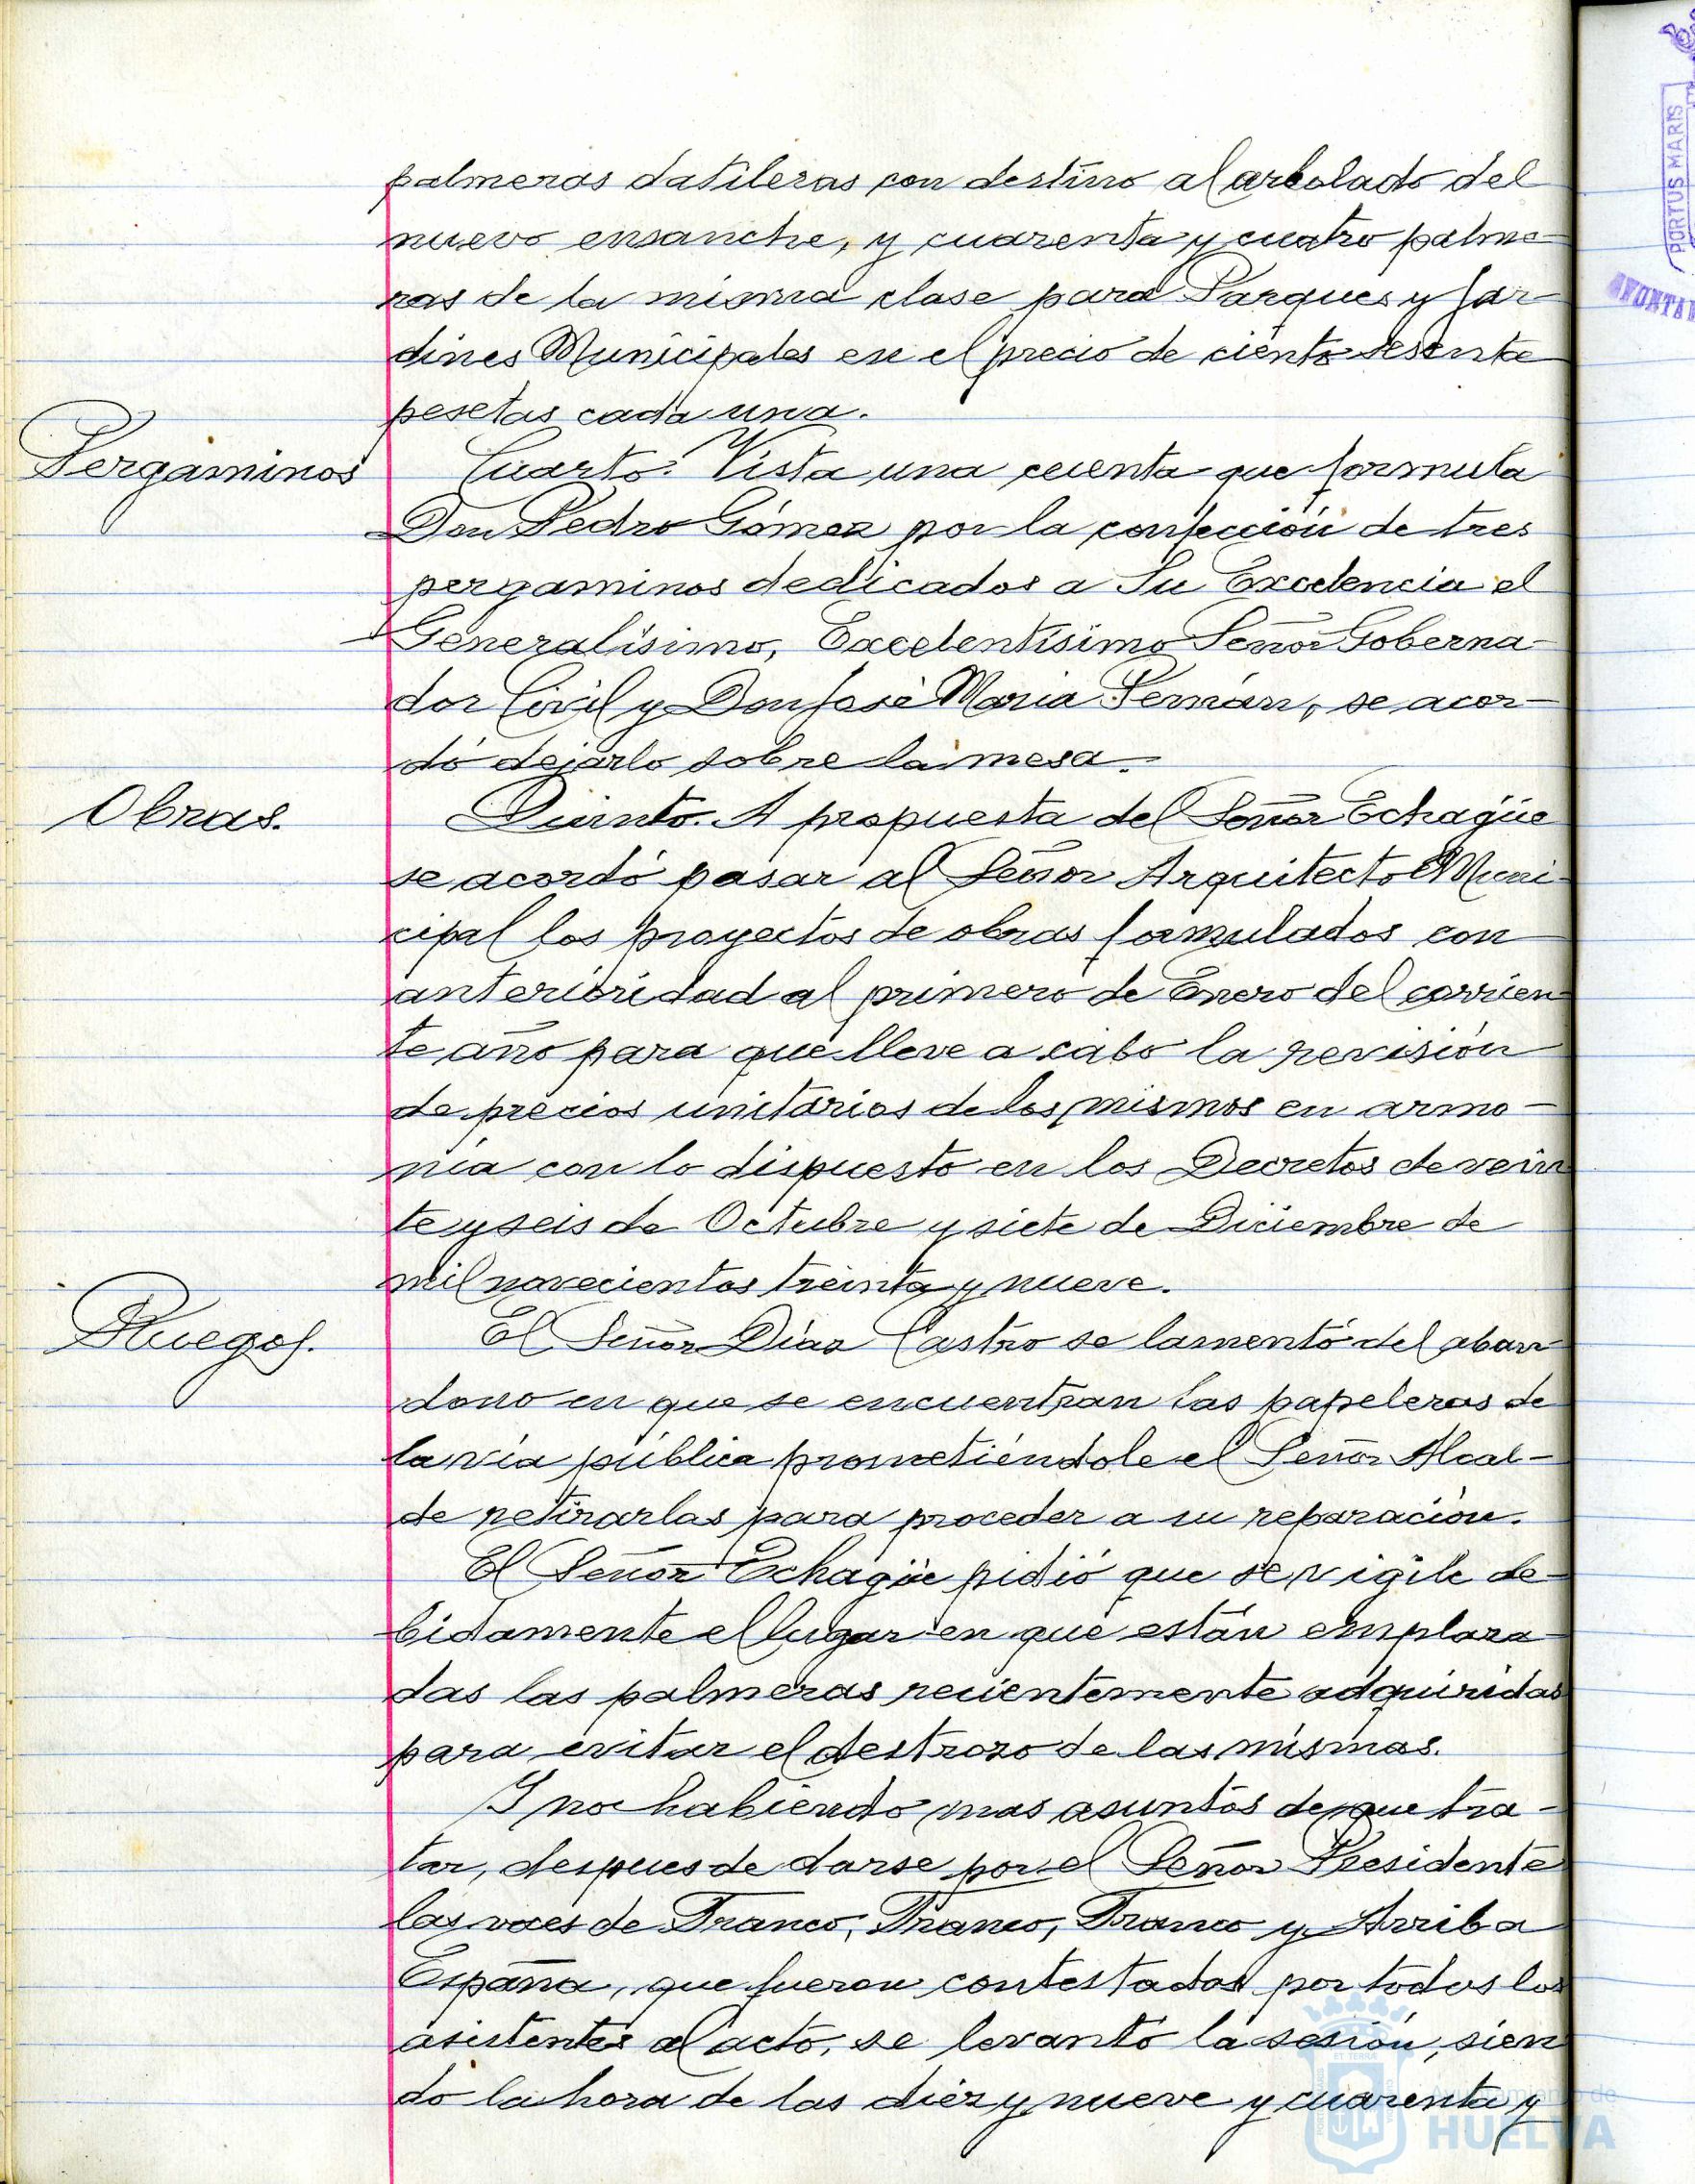 palmeras datileras con destino al arbolado del
nuevo ensanche, y cuarenta y cuatro palme-
ras de la misma clase para Parques y Jar-
dines Municipales en el precio de ciento sesenta
pesetas cada una.
Pergaminos
Cuarto. Vista una cuenta que formula
Don Pedro Gómez por la confección de tres
pergaminos dedicados a Su Excelencia el
Generalísimo, Excelentísimo Señor Goberna-
dor Civil y Don José Maria Pemán, se acor-
dó dejarlo sobre la mesa.
Obras.
Quinto. A propuesta del Señor Echagüe
se acordó pasar al Señor Arquitecto Muni-
cipal los proyectos de obras formulados con
anterioridad al primero de Enero del corrien-
te año para que lleve a cabo la revisión
de precios unitarios de los mismos en armo-
nía con lo dispuesto en los Decretos de vein
te y seis de Octubre y siete de Diciembre de
mil novecientos treinta y nueve.
Ruegos.
El Señor Díaz Castro se lamentó del aban-
dono en que se encuentran las papeleras de
la vía pública prometiéndole el Señor Alcal-
de retirarlas para proceder a su reparación.
El Señor Echagüe pidió que se vigile de-
bidamente el lugar en que están emplaza-
das las palmeras recientemente adquiridas
para evitar el destrozo de las mismas.
Y no habiendo mas asuntos de que tra-
tar, despues de darse por el Señor Presidente
las voces de Franco, Franco, Franco y Arriba
España, que fueron contestados por todos los
asistentes al acto, se levantó la sesión, sien
do la hora de las diez y nueve y cuarenta y
PORTUS MARIS
Ayuntamiento de
HUELVA